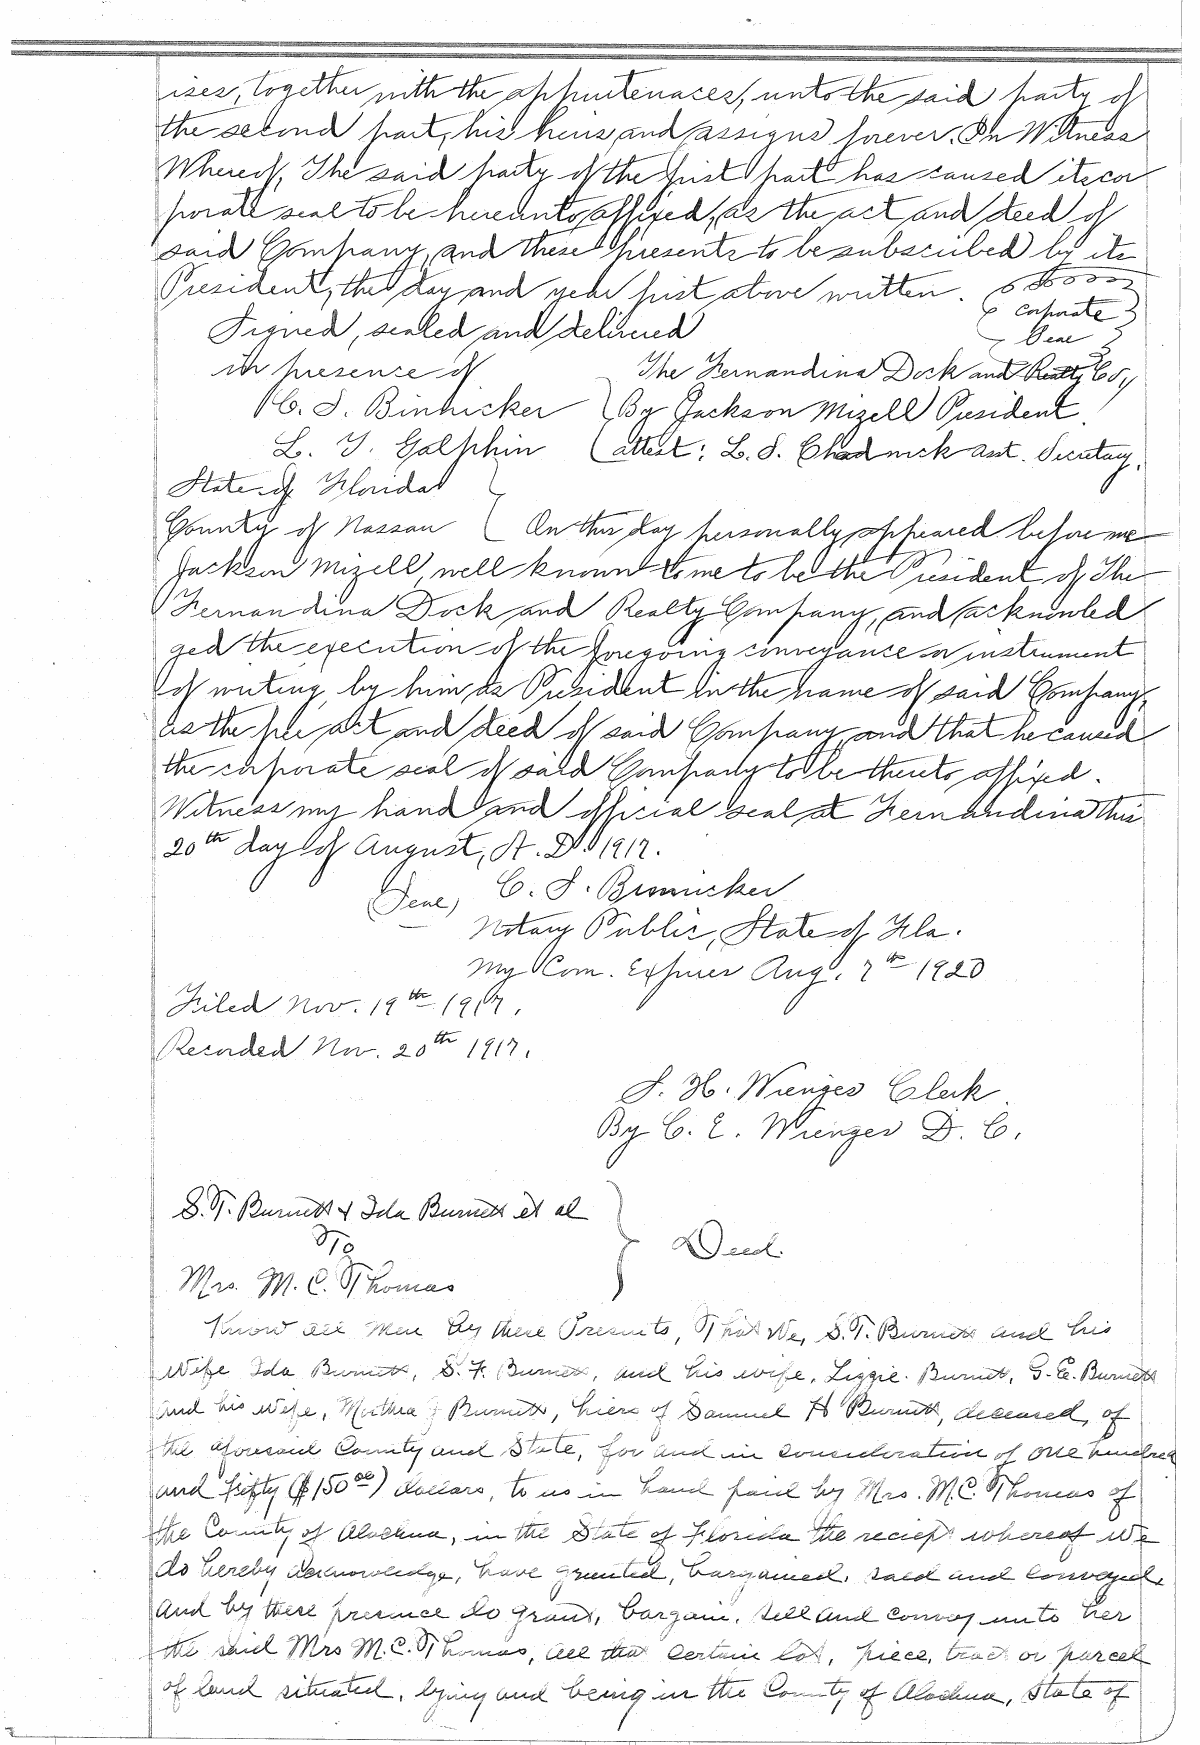 ises, together with the appurtenaces, unto the said party of
the second part, his heirs and assigns forever. In Witness
Whereof, The said party of the first part has caused its cor
porate seal to be hereunto affixed, as the act and deed of
said Company, and these presents to be subscribed by its
President, the day and year first above written.
corporate
Seal
Signed, sealed and delivered
in presence of The Fernandina Dock and Realty Co.,
C. J. Binnicker By Jackson Mizell President
L. Y. Galphin attest: L. S. Chadwick asst. Secretary.
State of Florida
County of Nassau On this day personally appeared before me
Jackson Mizell, well known to me to be the President of The
Fernandina Dock and Realty Company, and acknowled
ged the execution of the foregoing conveyance or instrument
of writing, by him as President in the name of said Company,
as the free act and deed of said Company, and that he caused
the corporate seal of said Company to be thereto affixed.
Witness my hand and official seal at Fernandina this
20th day of August, A. D. 1917.
(Seal) C. J. Binnicker
Notary Public, State of Fla.
My Com. Expires Aug. 7th 1920
Filed Nov. 19th 1917.
Recorded Nov. 20th 1917.
S. H. Wienges Clerk
By C. E. Wienges D. C.
S. T. Burnett & Ida Burnett et al
To
Deed.
Mrs. M. C. Thomas
Know all Men by these Presents, That We, S. T. Burnett and his
wife Ida Burnett, S. F. Burnett, and his wife, Lizzie Burnett, G. E. Burnett
and his wife, Marthea J Burnett, hiers of Samuel H Burnett, deceased, of
the aforesaid County and State, for and in consideration of one hundred
and fifty ($150.00) dollars, to us in hand paid by Mrs. M. C. Thomas of
the County of Alachua, in the State of Florida the reciept whereof we
do hereby acknowledge, have granted, bargained, sold and conveyed,
and by these presince do grant, bargain, sell and convey unto her
the said Mrs M. C. Thomas, all that certain lot, piece, tract or parcel
of land situated, lying and being in the County of Alachua, State of